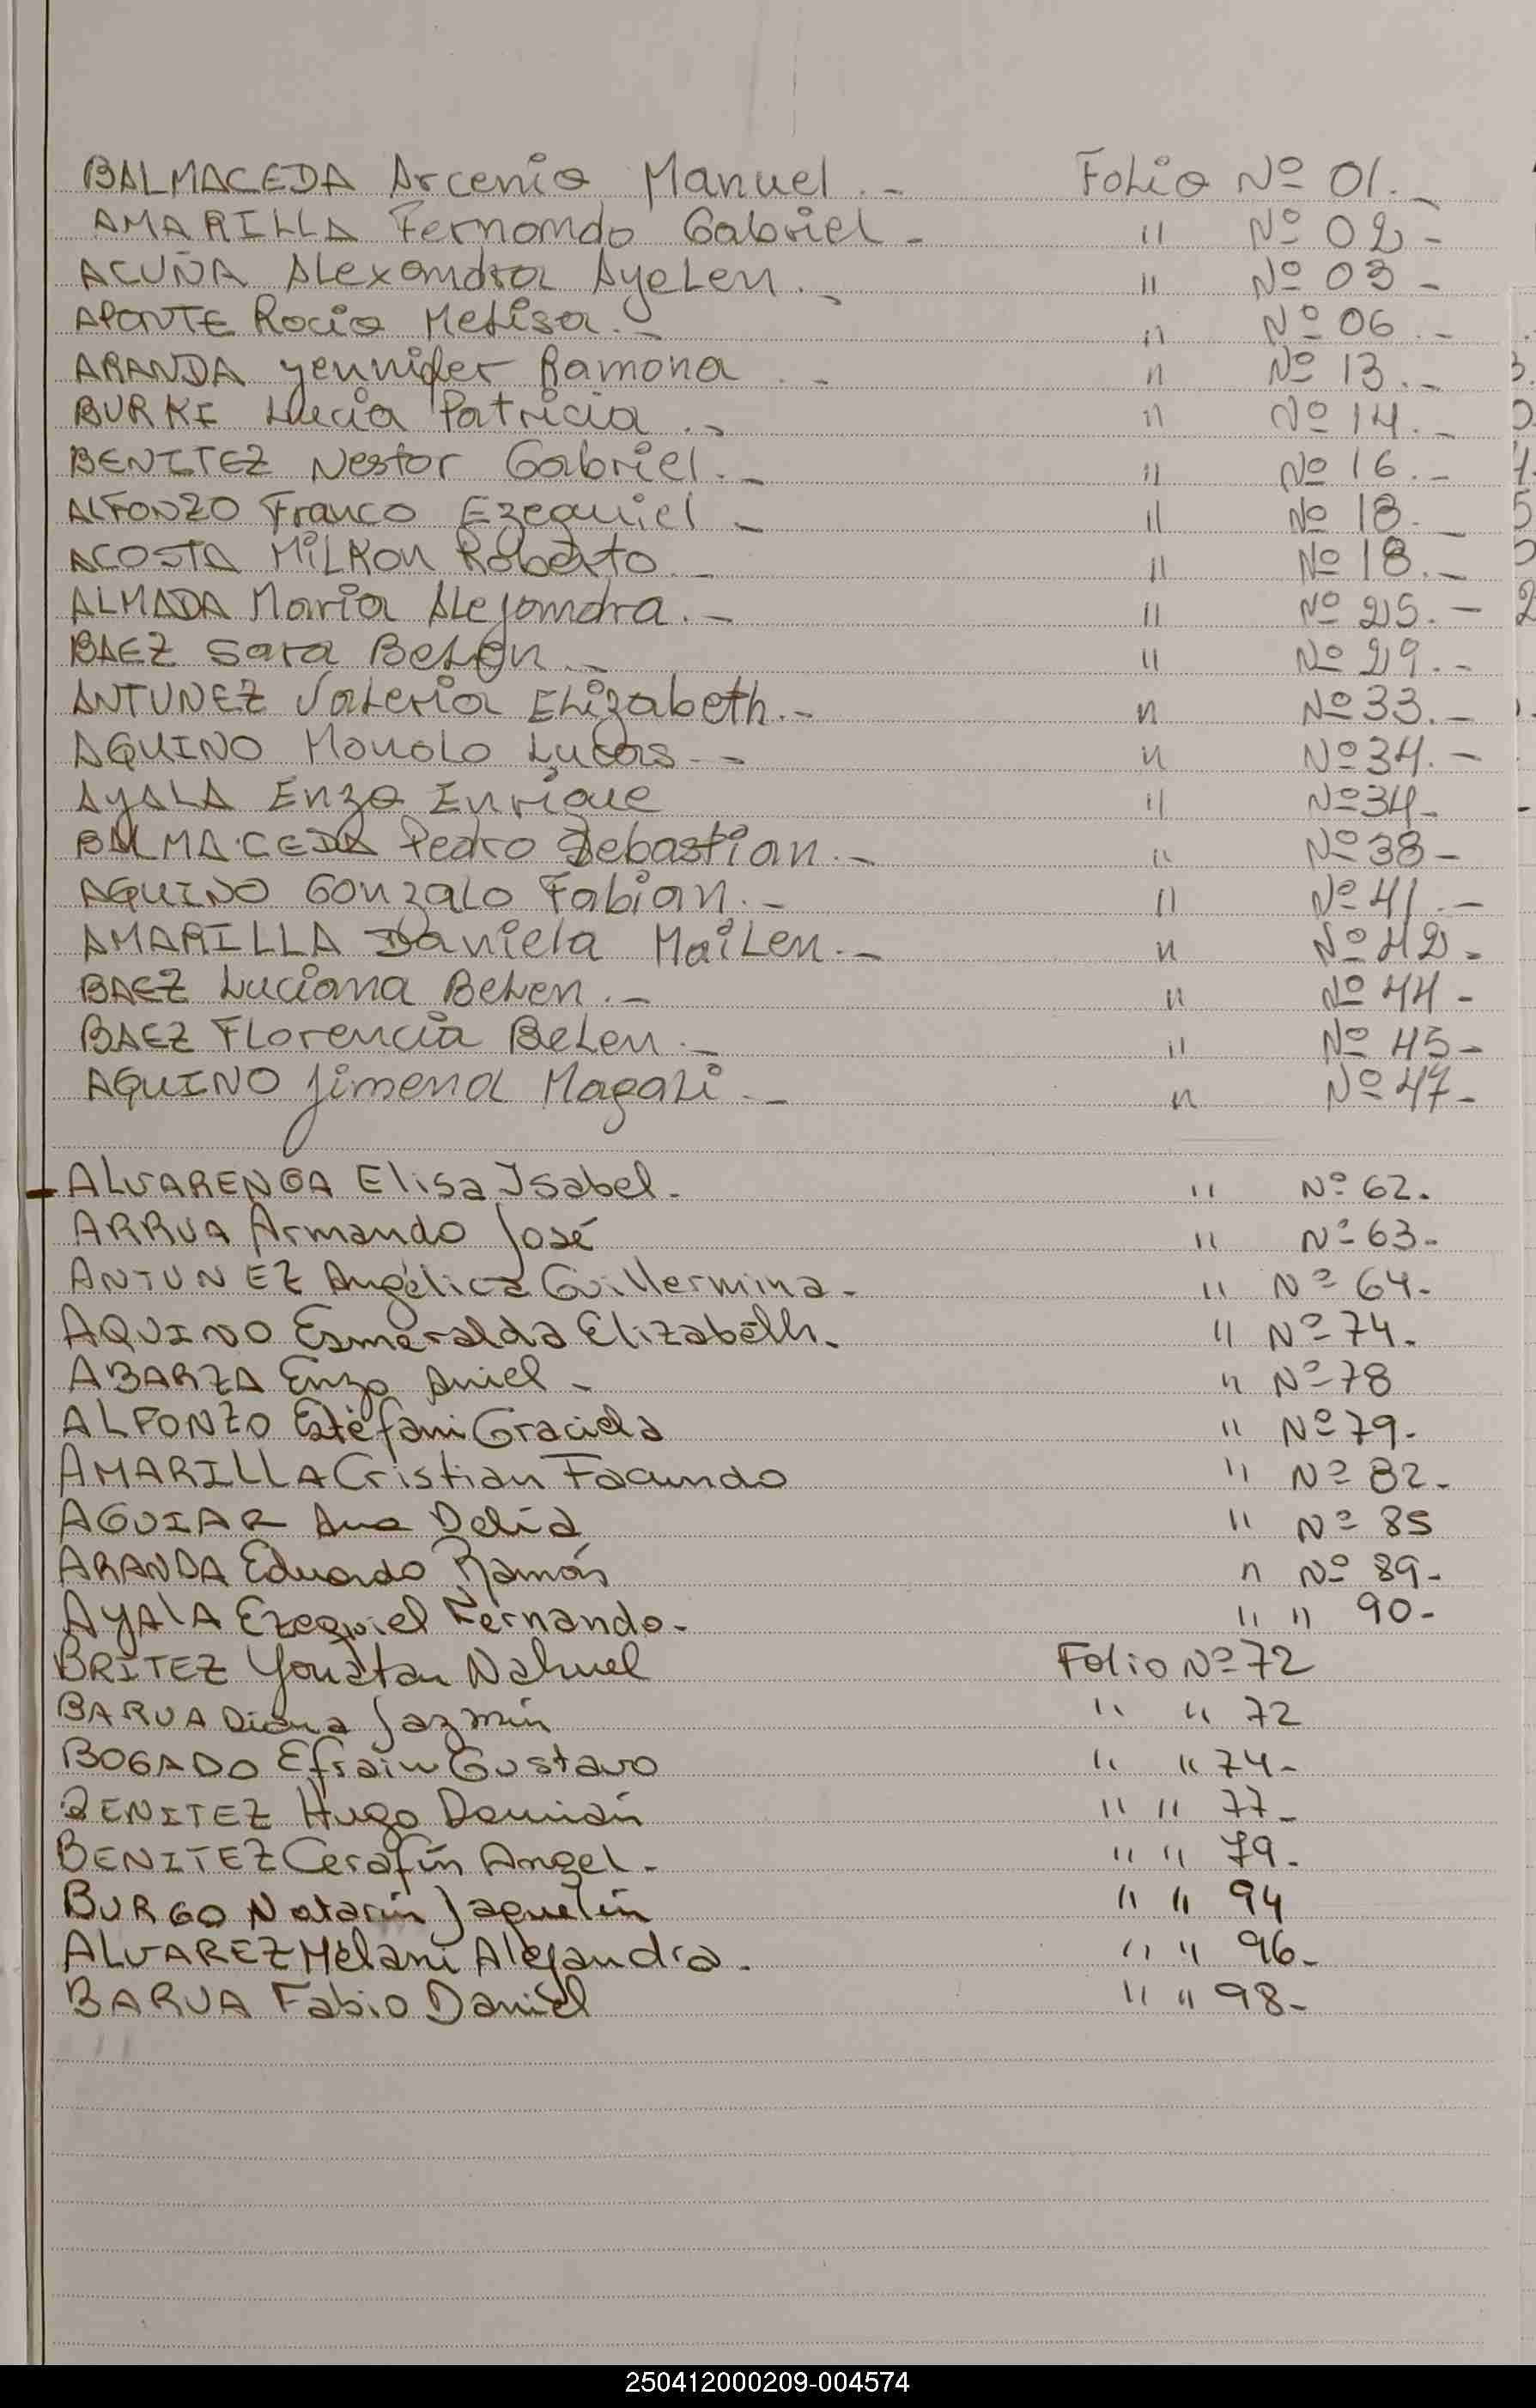 BALMACEDA Arcenio Manuel.- Folio Nº 01.-
AMARILLA Fernando Gabriel- " Nº 02-
ACUÑA Alexandra Ayelen.- " Nº 03-
APONTE Rocio Melisa.- " Nº 06.-
ARANDA Yennifer Ramona.- " Nº 13.-
BURKI Lucia Patricia.- " Nº 14.-
BENITEZ Nestor Gabriel.- " Nº 16.-
ALFONZO Franco Ezequiel- " Nº 18.-
ACOSTA Milkon Roberto- " Nº 18.-
ALMADA Maria Alejandra.- " Nº 25.-
BAEZ Sara Belen.- " Nº 29.-
ANTUNEZ Valeria Elizabeth.- " Nº 33.-
AQUINO Monolo Lucas.- " Nº 34.-
AYALA Enzo Enrique " Nº 34-
BALMACEDA Pedro Sebastian.- " Nº 38-
AQUINO Gonzalo Fabian.- " Nº 41.-
AMARILLA Daniela Mailen.- " Nº 42-
BAEZ Luciana Belen.- " Nº 44-
BAEZ Florencia Belen.- " Nº 45-
AQUINO Jimena Magali.- " Nº 47-
-ALVARENGA Elisa Isabel- " Nº 62.
ARRUA Armando José " Nº 63-
ANTUNEZ Angélica Guillermina- " Nº 64-
AQUINO Esmeralda Elizabeth. " Nº 74.
ABARZA Enzo Aniel- " Nº 78
ALFONZO Estefani Graciela " Nº 79-
AMARILLA Cristian Facundo " Nº 82-
AGUIAR Ana Delia " Nº 85
ARANDA Eduardo Ramón " Nº 89-
AYALA Ezequiel Fernando- " " 90-
BRITEZ Yonatan Nahuel Folio Nº 72
BARUA Diana Jazmin " " 72
BOGADO Efrain Gustavo " " 74-
BENITEZ Hugo Damián " " 77-
BENITEZ Cerafín Angel- " " 79-
BURGO Natarin Jaquelin " " 94
ALVAREZ Melani Alejandra. " " 96-
BARUA Fabio Daniel " " 98-
250412000209-004574